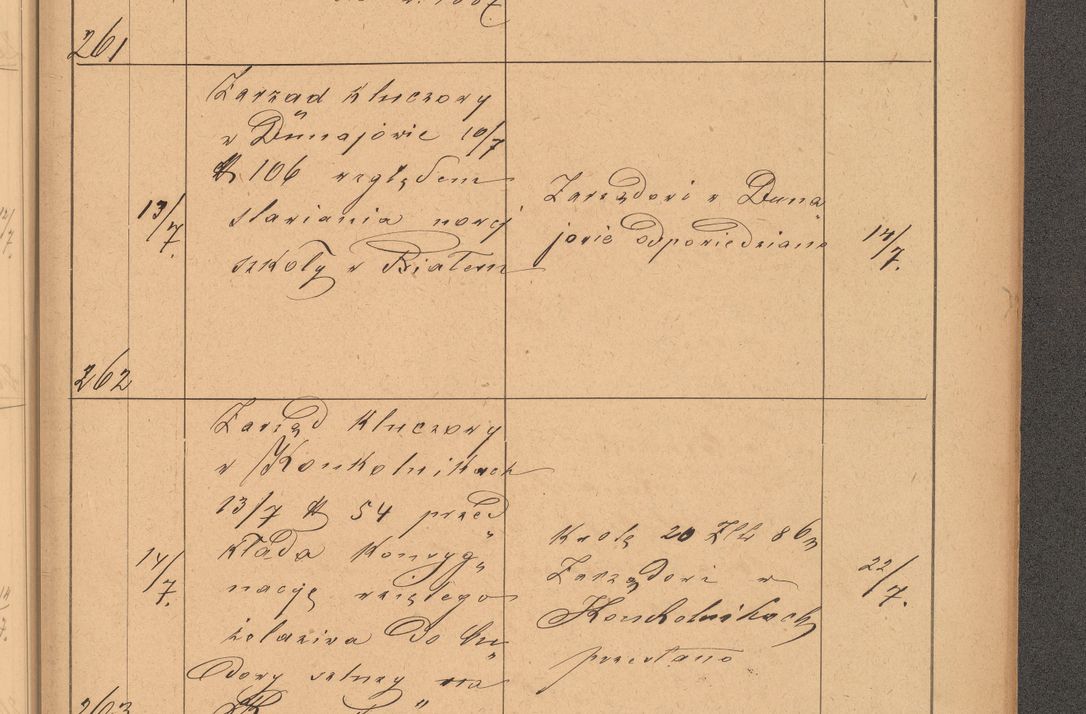 261
Zarząd kluczowy
w Dunajowie 10/7
N 106 względem
stawiania nowej
szkoły w Białem
13/7.
Zarządowi w Duna
jowie odpowiedziano
14/7.
262
Zarząd kluczowy
w Konkolnikach
13/7 N 54 przed
kłada konsyg"
nację wziętego
żelaziwa do bu"
dowy
14/7.
Kwotę 20 Złr 86
Zarządowi w
Konkolnikach
przesłano
22/7.
263